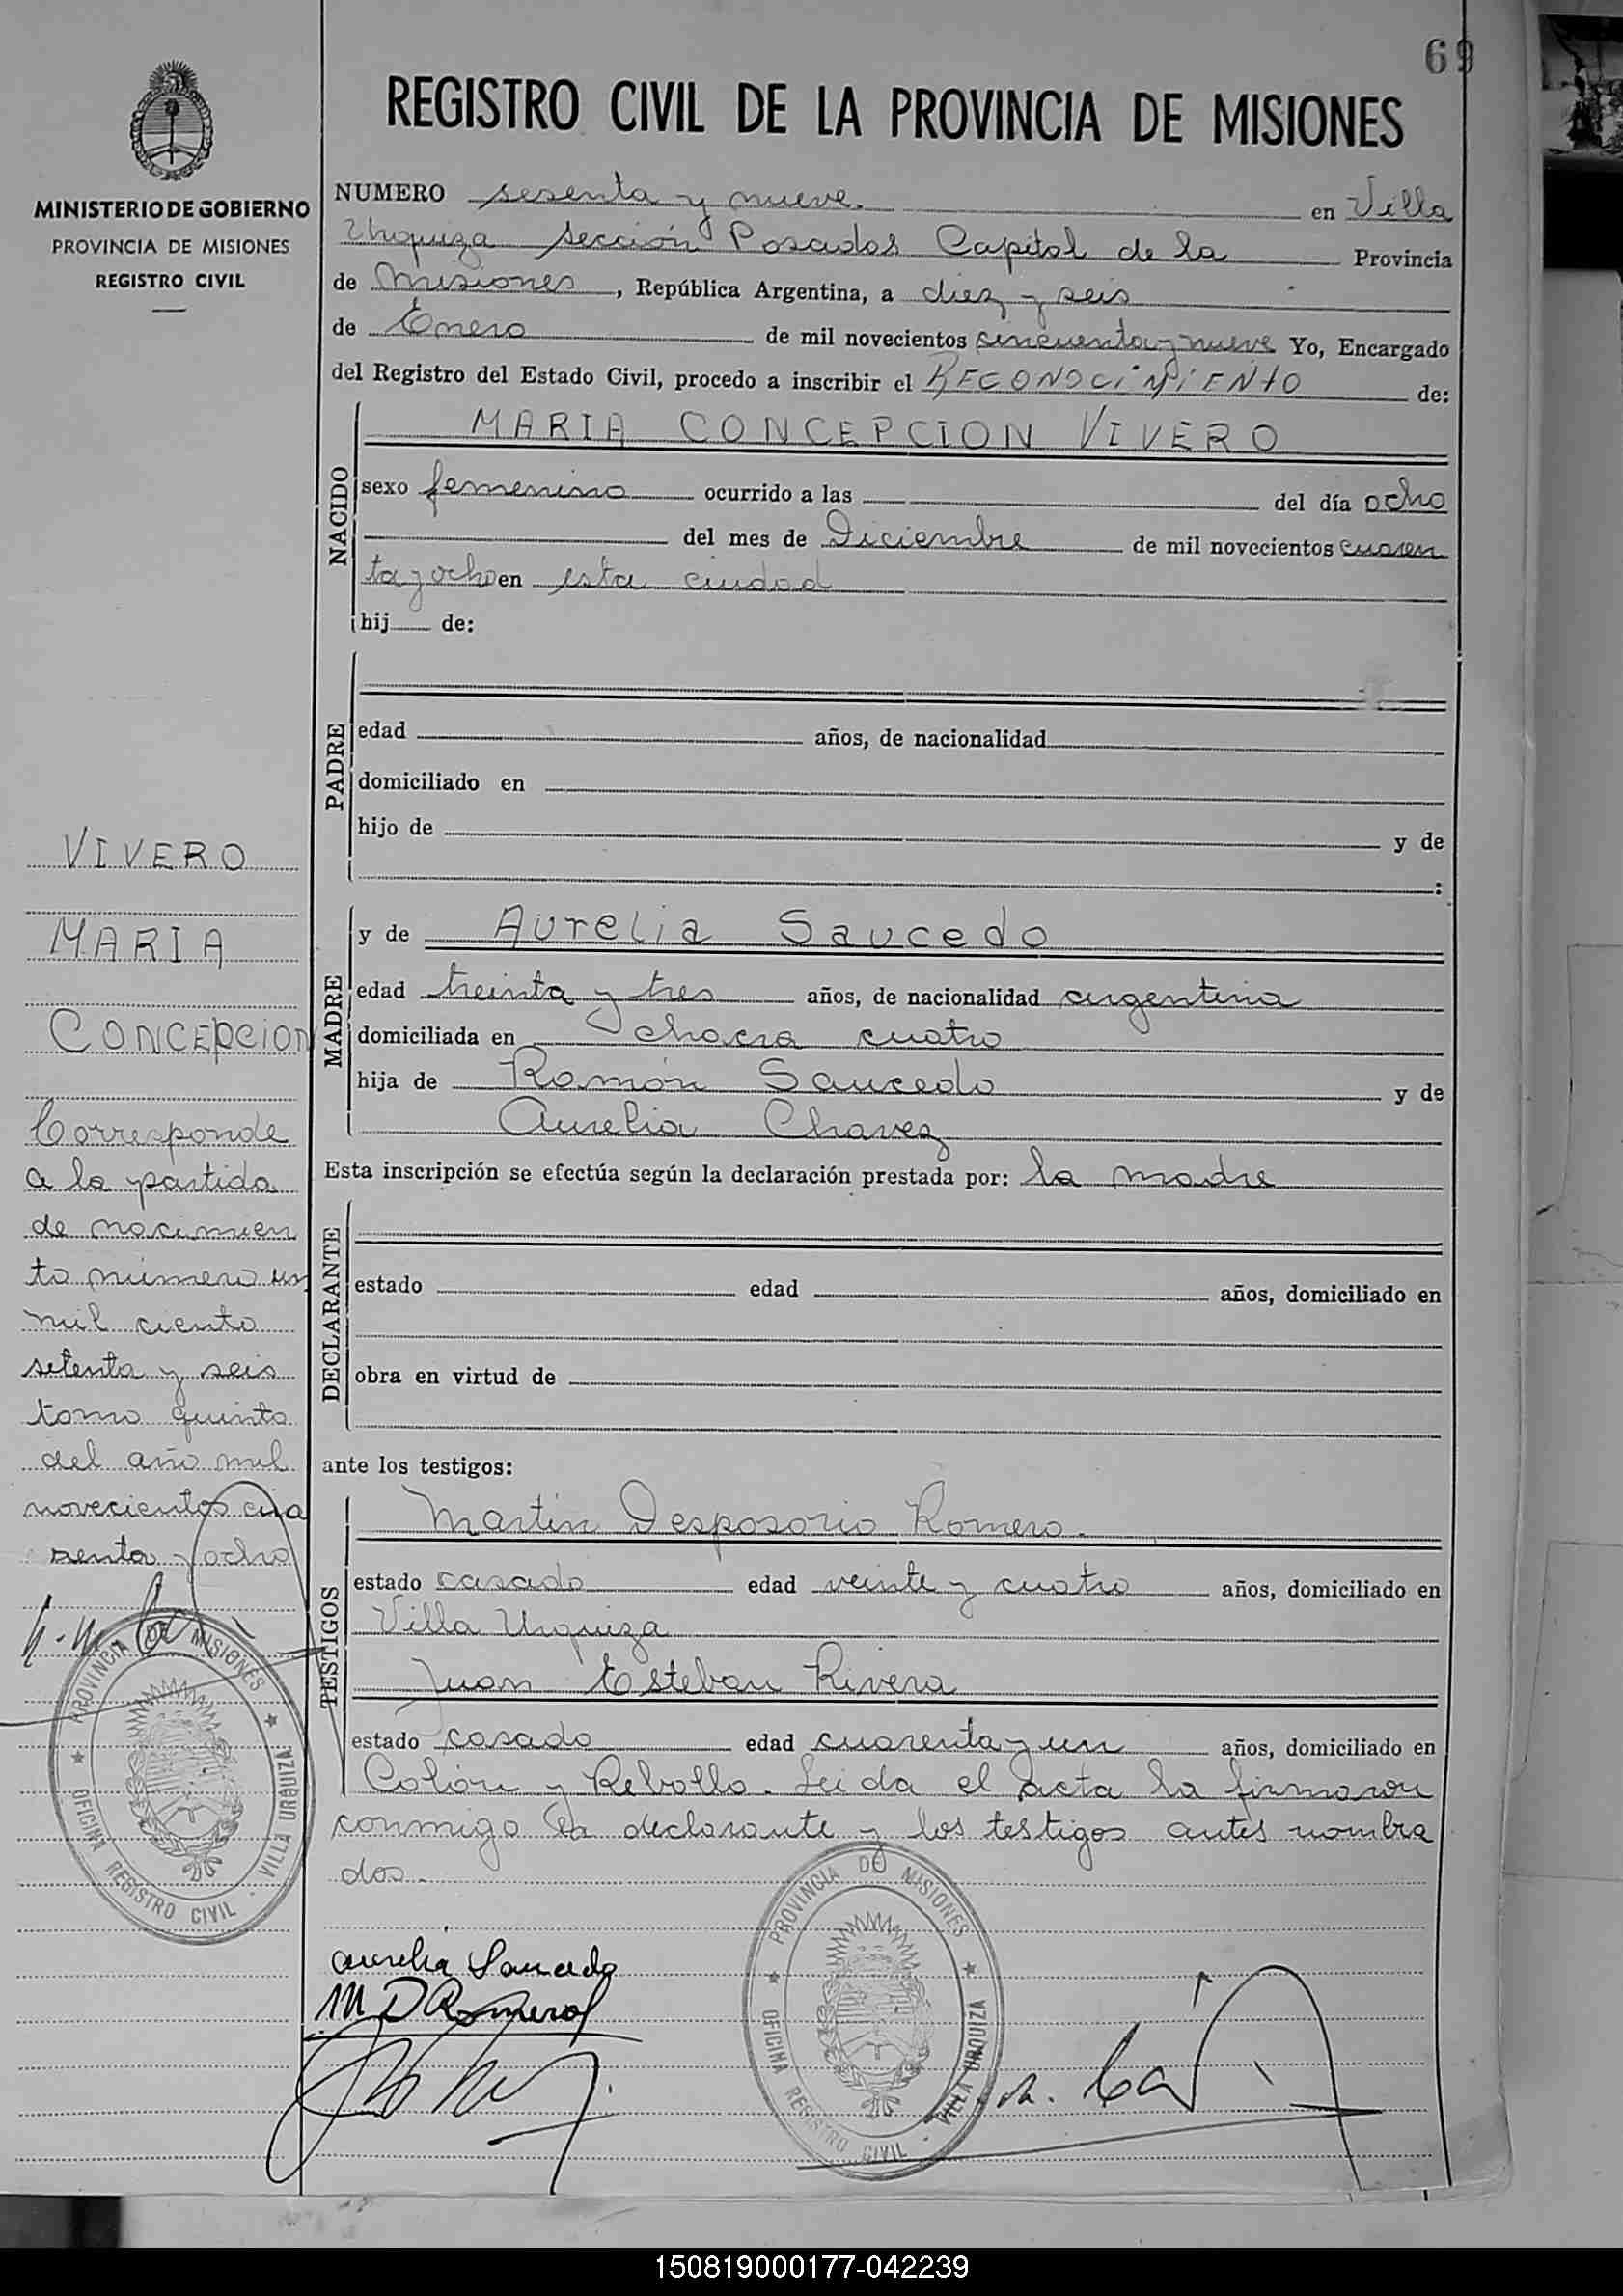 69
REGISTRO CIVIL DE LA PROVINCIA DE MISIONES
MINISTERIO DE GOBIERNO
PROVINCIA DE MISIONES
REGISTRO CIVIL
NUMERO sesenta y nueve. en Villa
Urquiza Sección Posadas Capital de la Provincia
de Misiones, República Argentina, a diez y seis
de Enero de mil novecientos cincuenta y nueve Yo, Encargado
del Registro del Estado Civil, procedo a inscribir el RECONOCIMIENTO de:
NACIDO
MARIA CONCEPCION VIVERO
sexo femenino ocurrido a las del día ocho
del mes de Diciembre de mil novecientos cuaren
ta y ocho en esta ciudad
hij de:
PADRE
edad años, de nacionalidad
domiciliado en
hijo de y de
:
MADRE
y de Aurelia Saucedo
edad treinta y tres años, de nacionalidad argentina
domiciliada en chacra cuatro
hija de Ramón Saucedo y de
Aurelia Chavez
Esta inscripción se efectúa según la declaración prestada por: la madre
DECLARANTE
estado edad años, domiciliado en
obra en virtud de
ante los testigos:
TESTIGOS
Martín Desposorio Romero.
estado casado edad veinte y cuatro años, domiciliado en
Villa Urquiza
Juan Esteban Rivera
estado casado edad cuarenta y un años, domiciliado en
Colón y Rebollo. Leida el acta la firmaron
conmigo la declarante y los testigos antes nombra
dos.
Aurelia Saucedo
M D Romero
VIVERO
MARIA
CONCEPCION
Corresponde
a la partida
de nacimien
to número un
mil ciento
setenta y seis
tomo quinto
del año mil
novecientos cua
renta y ocho
PROVINCIA DE MISIONES
OFICINA REGISTRO CIVIL - VILLA URQUIZA
PROVINCIA DE MISIONES
OFICINA REGISTRO CIVIL - VILLA URQUIZA
150819000177-042239